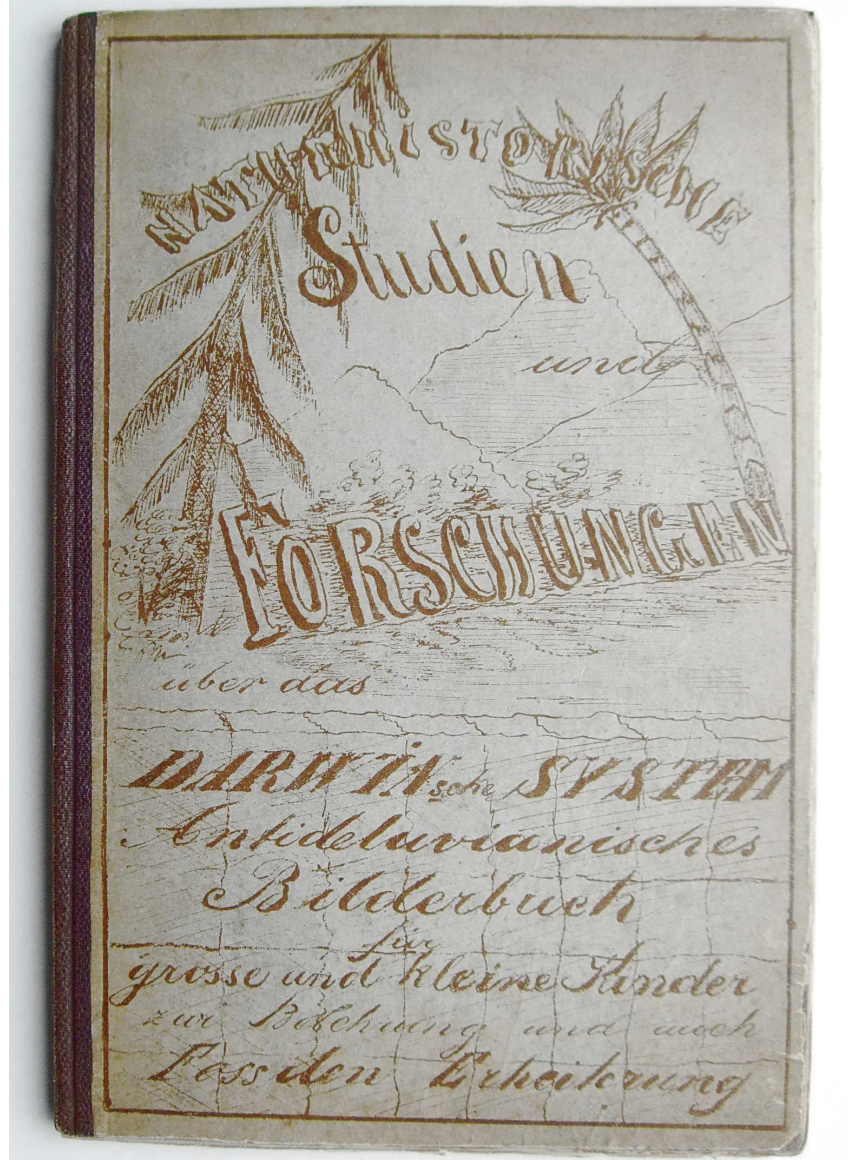 NATURHISTORISCHE
Studien
und
FORSCHUNGEN
über das
DARWIN'sche SYSTEM
Antideluvianisches
Bilderbuch
für
grosse und kleine Kinder
zur Belehrung und auch
Erheiterung